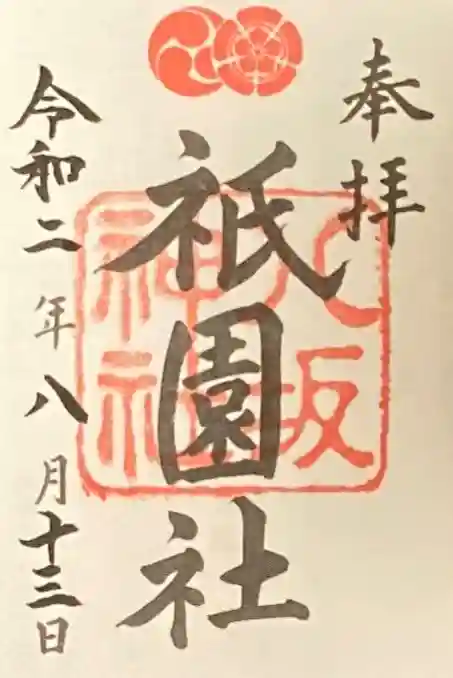 奉拝
八坂
神社
祇園社
令和二年八月十三日